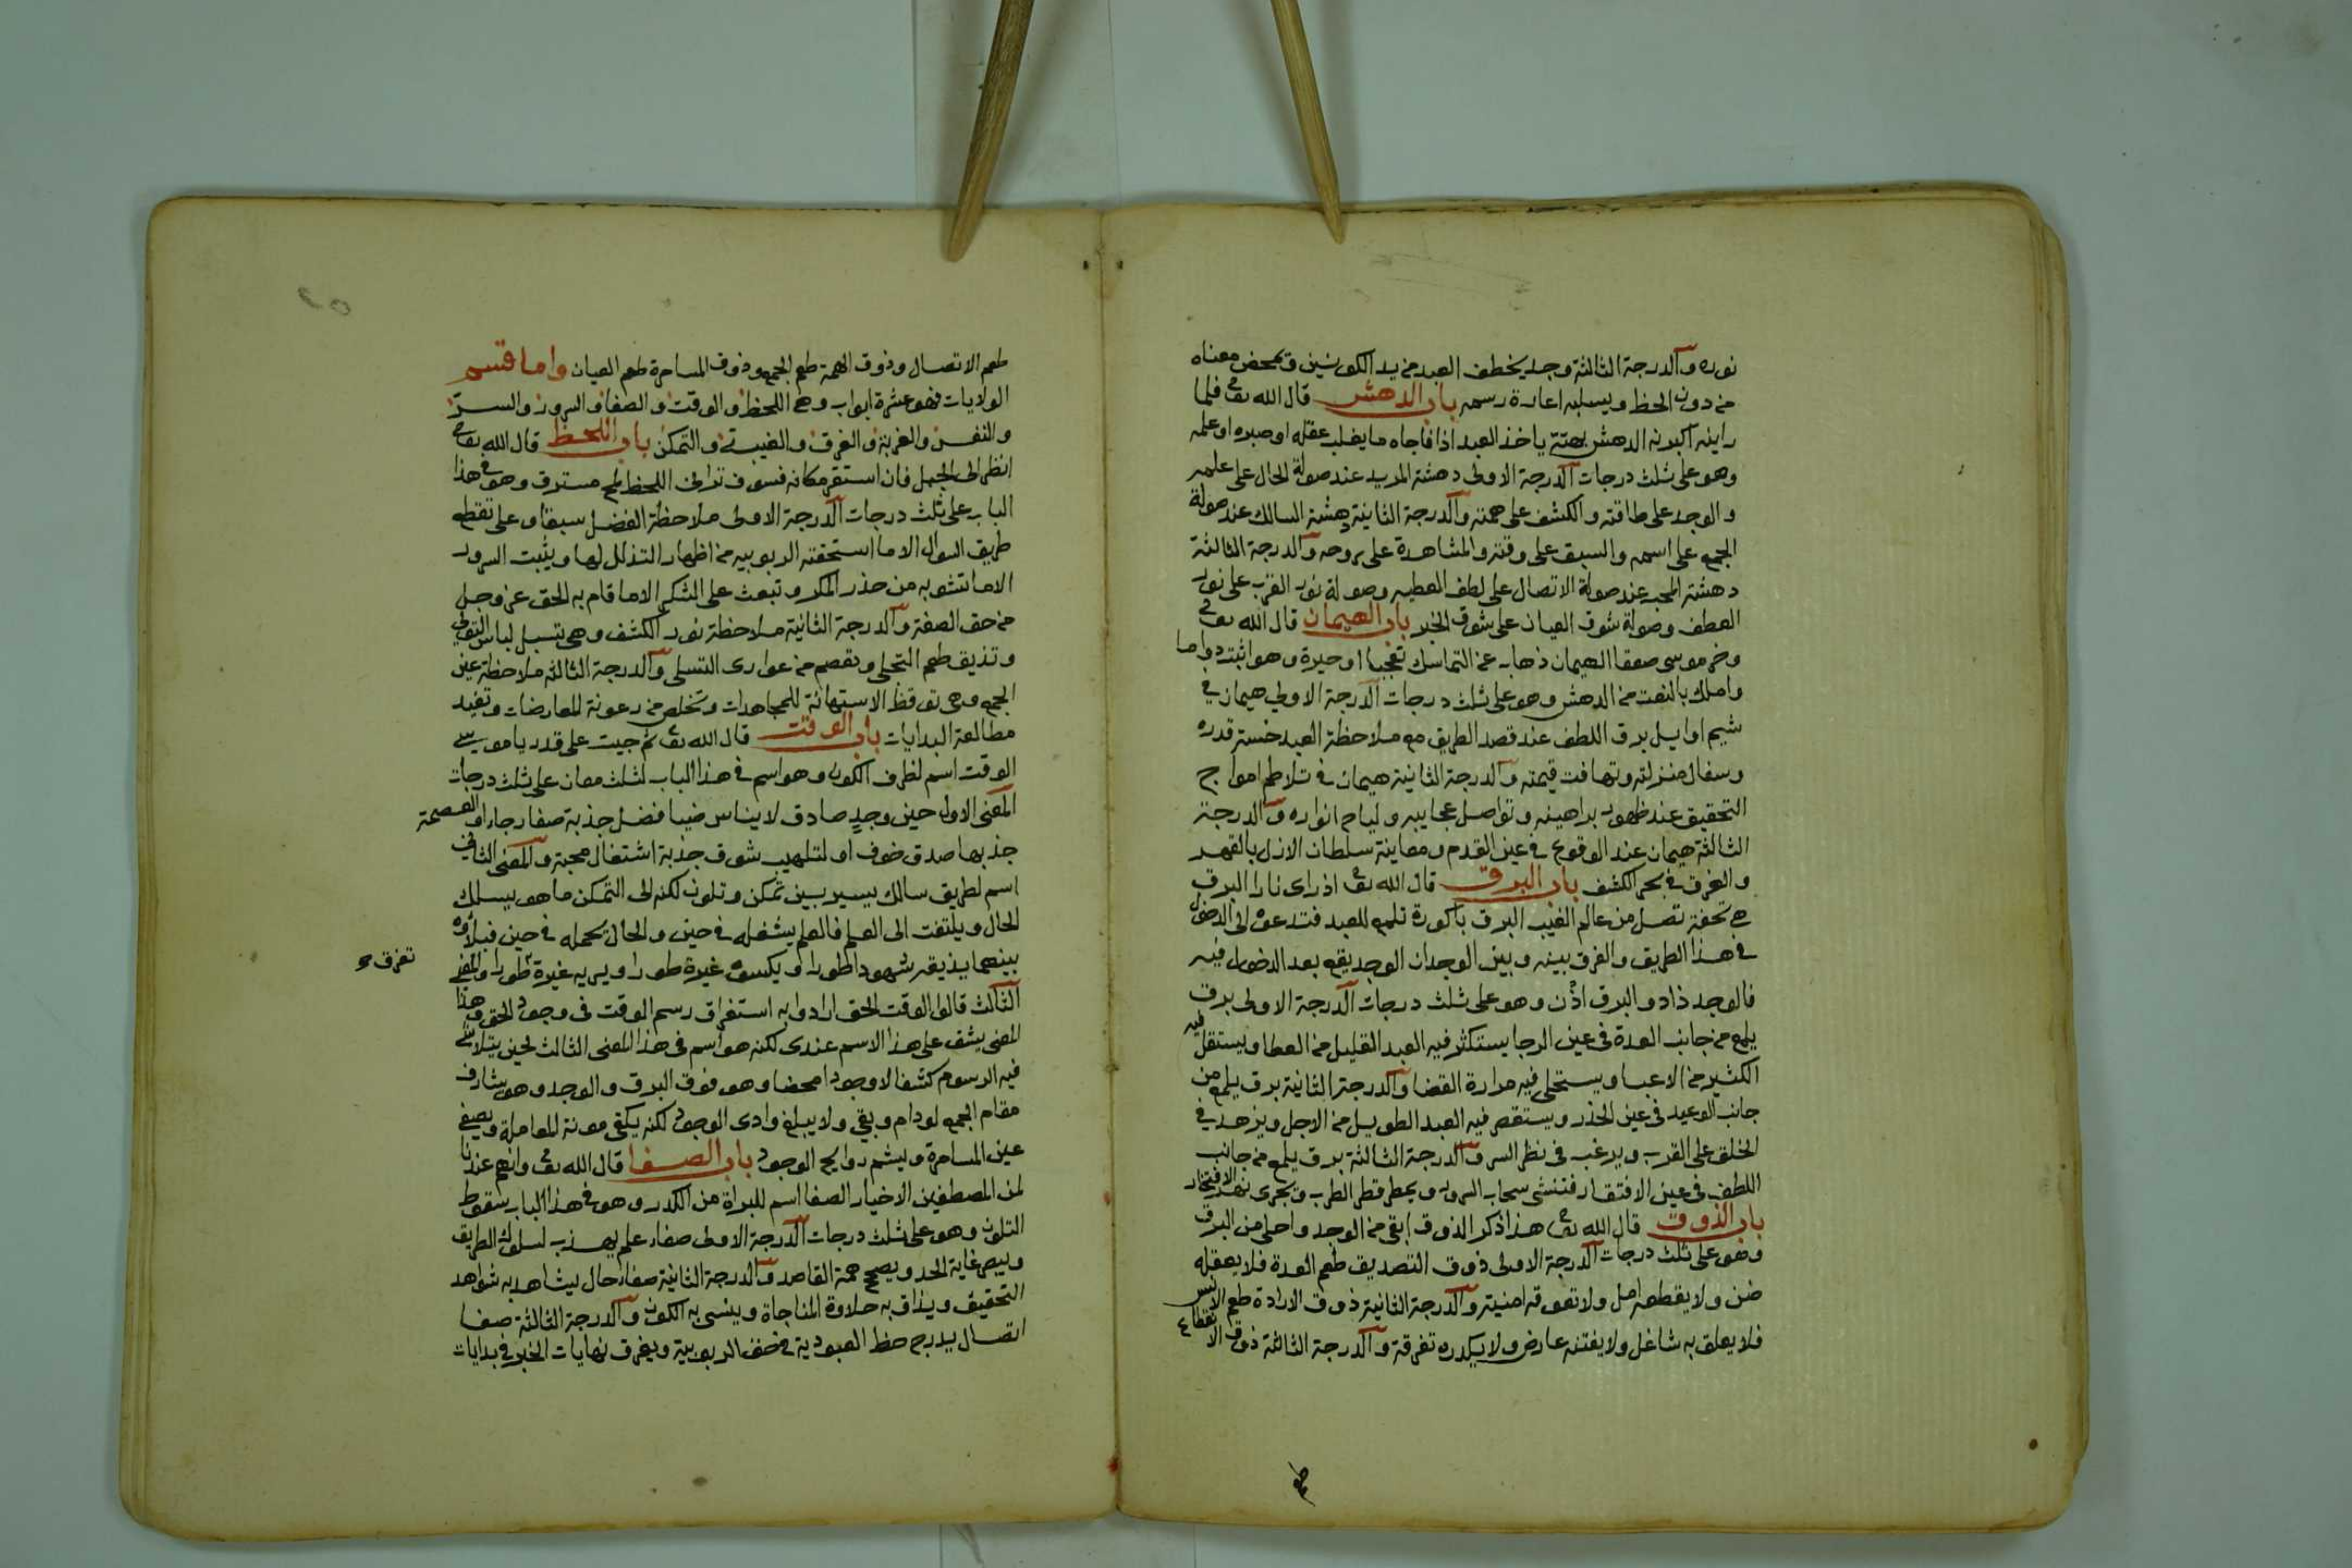 نوره والدرجة الثالثة وجد يخطف العبد من يد الكونين ويمحض معناه
من دون الحظ ويسلبه اعارة رسمه باب الدهش قال الله تع فلما
راينه اكبرنه الدهش بهتة ياخذ العبد اذا فاجاه ما يغلب عقله او صبره او علمه
وهو على ثلث درجات الدرجة الاولى دهشة المريد عند صولة الحال على علمه
والوجد على طاقته والكشف على همته والدرجة الثانية دهشة السالك عند صولة
الجمع على اسمه والسبق على وقته والمشاهدة على روحه والدرجة الثالثة
دهشة المحب عند صولة الاتصال على لطف العطيه وصولة نور القرب على نور
العطف وصولة شوق العيان على شوق الخبر باب الهيمان قال الله تع
وخر موسى صعقا الهيمان ذهاب عن التماسك تعجبا او حيرة وهو اثبت دواما
واملك بالنعت من الدهش وهو على ثلث درجات الدرجة الاولي هيمان في
شيم اوايل برق اللطف عند قصد الطريق مع ملاحظة العبد خسة قدره
وسفال منزلته وتهافت قيمته والدرجة الثانية هيمان في تلاطم امواج
التحقيق عند ظهور براهينه وتواصل عجايبه ولياح انواره والدرجة
الثالثة هيمان عند الوقوع في عين القدم ومعاينة سلطان الازل بالقهر
والغرق في بحر الكشف باب البرق قال الله تع اذ راى نارا البرق
هي تحفة تصل من عالم الغيب البرق باكورة تلمع للعبد فتدعوه الى الدخول
في هذا الطريق والفرق بينه وبين الوجدان الوجد يقع بعد الدخول فيه
فالوجد زاد والبرق اذن وهو على ثلث درجات الدرجة الاولى برق
يلمع من جانب العدة في عين الرجا يستكثر فيه العبد القليل من العطا ويستقل فيه
الكثير من الاعبا ويستحلى فيه مرارة القضا والدرجة الثانية برق يلمع من
جانب الوعيد في عين الحذر ويستقصر فيه العبد الطويل من الاجل ويزهد في
الخلق على القرب ويرغب في نظر السر والدرجة الثالثة برق يلمع من جانب
اللطف في عين الافتقار فتنشى سحاب السرور ويمطر قطر الطرب ويجرى نهر الافتخار
باب الذوق قال الله تع هذا ذكر الذوق ابقى من الوجد واحلى من البرق
وهو على ثلث درجات الدرجة الاولى ذوق التصديق طعم العدة فلا يعقله
ضن ولا يقطعه امل ولا تعوقه امنية والدرجة الثانية ذوق الارادة طعم الانس
فلا يعلق به شاغل ولا يفتنه عارض ولا يكدره تفرقة والدرجة الثالثة ذوق الانقطاع
طعم
طعم الاتصال وذوق الهمة طعم الجمع وذوق المسامرة طعم العيان واما قسم
الولايات فهو عشرة ابواب وهي اللحظ والوقت والصفا والسرور والسر
والنفس والغربة والغرق والغيبة والتمكن باب اللحظ قال الله تع
انظر الى الجبل فان استقر مكانه فسوف تراني اللحظ لمح مسترق وهو في هذا
الباب على ثلث درجات الدرجة الاولى ملاحظة الفضل سبقا وهى تقطع
طريق السوال الا ما استحقته الربوبيه من اظهار التذلل لها ويثبت السرور
الا ما تشوبه من حذر المكر وتبعث على الشكر الا ما قام به الحق عز وجل
من حق الصفة والدرجة الثانية ملاحظة نور الكشف وهى تسبل لباس التولي
وتذيق طعم التجلى وتعصم من عوارى التسلى والدرجة الثالثة ملاحظة عين
الجمع وهى توقظ الاستهانة للمجاهدات وتخلص من رعونة المعارضات وتفيد
مطالعة البدايات باب الوقت قال الله تع ثم جيت على قدر يا موسى
الوقت اسم لظرف الكون وهو اسم في هذا الباب لثلث معان على ثلث درجات
المعنى الاول حين وجد صادق لايناس ضيا فضل جذبة صفا رجاء او العصمة
جذبها صدق خوف او لتلهيب شوق جذبة اشتعال محبة والمعنى الثاني
اسم لطريق سالك يسير بين تمكن وتلون لكنه الى التمكن ما هو يسلك
الحال ويلتفت الى العلم فالعلم يشغله في حين والحال يحمله في حين فبلاؤه
بينهما يذيقه شهودا طورا ويكسوه غيرة طورا ويريه غيرة طورا والمعنى
تفرق
الثالث قالوا الوقت الحق ارادوا به استغراق رسم الوقت في وجود الحق وهذا
المعنى يشق على هذا الاسم عندى لكنه هو اسم في هذا المعنى الثالث لحين يتلاشى
فيه الرسوم كشفا لا وجودا محضا وهو فوق البرق والوجد وهو يشارف
مقام الجمع لو دام وبقي ولا يبلغ وادى الوجود لكنه يكفى مونة المعاملة ويصفي
عين المسامرة ويشم روايح الوجود باب الصفا قال الله تع وانهم عندنا
لمن المصطفين الاخيار الصفا اسم للبراة من الكدر وهو في هذا الباب سقوط
التلون وهو على ثلث درجات الدرجة الاولى صفاء علم يهذب لسلوك الطريق
ويبصر غاية الجد ويصحح همة القاصد والدرجة الثانية صفاء حال يشاهد به شواهد
التحقيق ويذاق به حلاوة المناجاة وينسى به الكون والدرجة الثالثة صفا
اتصال يدرج حظ العبودية في حق الربوبية ويغرق نهايات الخبر في بدايات